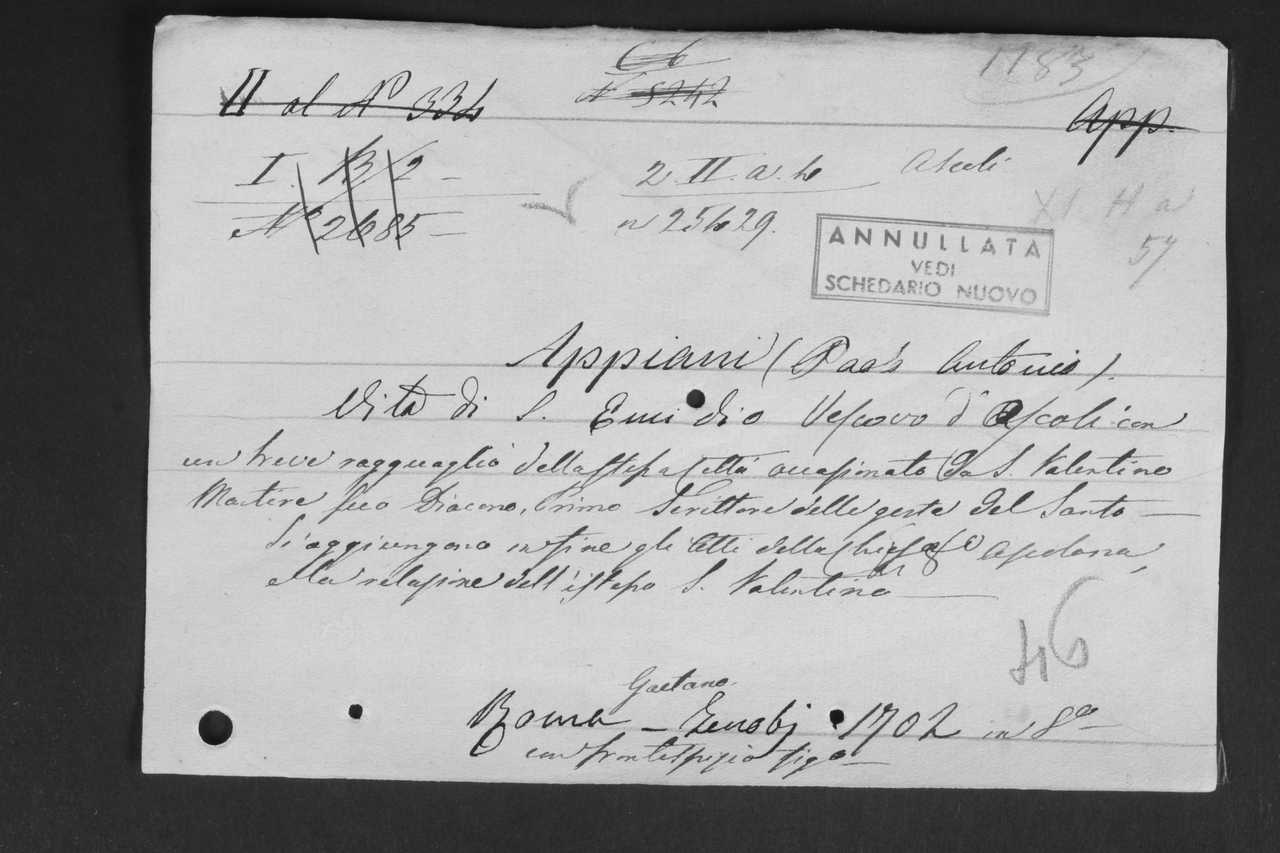 1783
II al N° 334
N 5242
App.
I. 132 -
2 II. a. 4
Ascoli
XI H a
57
N° 2685 -
n 25429.
ANNULLATA
VEDI
SCHEDARIO NUOVO
Appiani (Paolo Antonio).
Vita di S. Emidio Vescovo d'Ascoli con
un breve ragguaglio della stessa Città occasionato da S. Valentino
Martire suo Diacono, Primo Scrittore delle geste del Santo —
Si aggiungono in fine gli Atti della Chiesa Ascolana,
e la relazione dell'istesso S. Valentino —
46
Gaetano
Roma – Zenobj 1702 in 8°
con frontespizio fig°